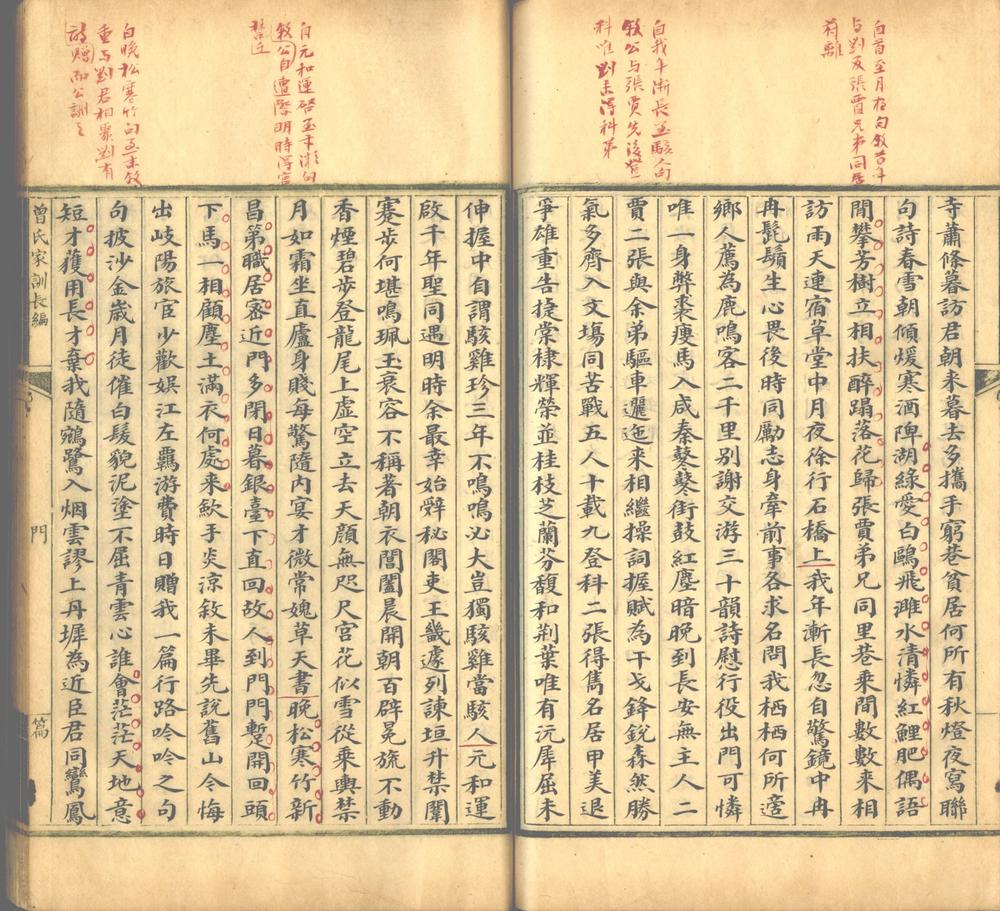 自首至月夜句敘昔年
与劉及張賈兄弟同居
符離
自我年漸長至駭人句
敘公与張賈先後登
科唯劉未得科第
寺蕭條暮訪君朝來暮去多攜手窮巷貧居何所有秋燈夜寫聯
句詩春雪朝傾煖寒酒陴湖綠愛白鷗飛濉水清憐紅鯉肥偶語
閒攀芳樹立相扶醉蹋落花歸張賈弟兄同里巷乘閒數數來相
訪雨天連宿草堂中月夜徐行石橋上我年漸長忽自驚鏡中冉
冉髭鬚生心畏後時同勵志身牽前事各求名問我栖栖何所適
鄉人薦為鹿鳴客二千里別謝交游三十韻詩慰行役出門可憐
唯一身弊裘瘦馬入咸秦鼕鼕街鼓紅塵暗晚到長安無主人二
賈二張與余弟驅車邐迤來相繼操詞握賦為干戈鋒銳森然勝
氣多齊入文場同苦戰五人十載九登科二張得雋名居甲美退
爭雄重告捷棠棣輝榮並桂枝芝蘭芬馥和荊葉唯有沅犀屈未
自元和運啓至年漸句
敘公自遭際明時得官
禁近
自晚松寒竹句至末敘
重与劉君相聚劉有
詩贈而公訓之
伸握中自謂駭雞珍三年不鳴鳴必大豈獨駭雞當駭人元和運
啟千年聖同遇明時余最幸始辭秘閣吏王畿遽列諫垣升禁闈
蹇步何堪鳴珮玉衰容不稱著朝衣閶闔晨開朝百辟冕旒不動
香煙碧步登龍尾上虛空立去天顏無咫尺宮花似雪從乘輿禁
月如霜坐直廬身賤每驚隨內宴才微常媿草天書晚松寒竹新
昌第職居密近門多閉日暮銀臺下直回故人到門門蹔開回頭
下馬一相顧塵土滿衣何處來歛手炎涼敘未畢先說舊山今悔
出岐陽旅宦少歡娛江左羈游費時日贈我一篇行路吟吟之句
句披沙金歲月徒催白髮貌泥塗不屈青雲心誰會茫茫天地意
短才獲用長才棄我隨鵷鷺入烟雲謬上丹墀為近臣君同鸞鳳
曾氏家訓長編 門 篇